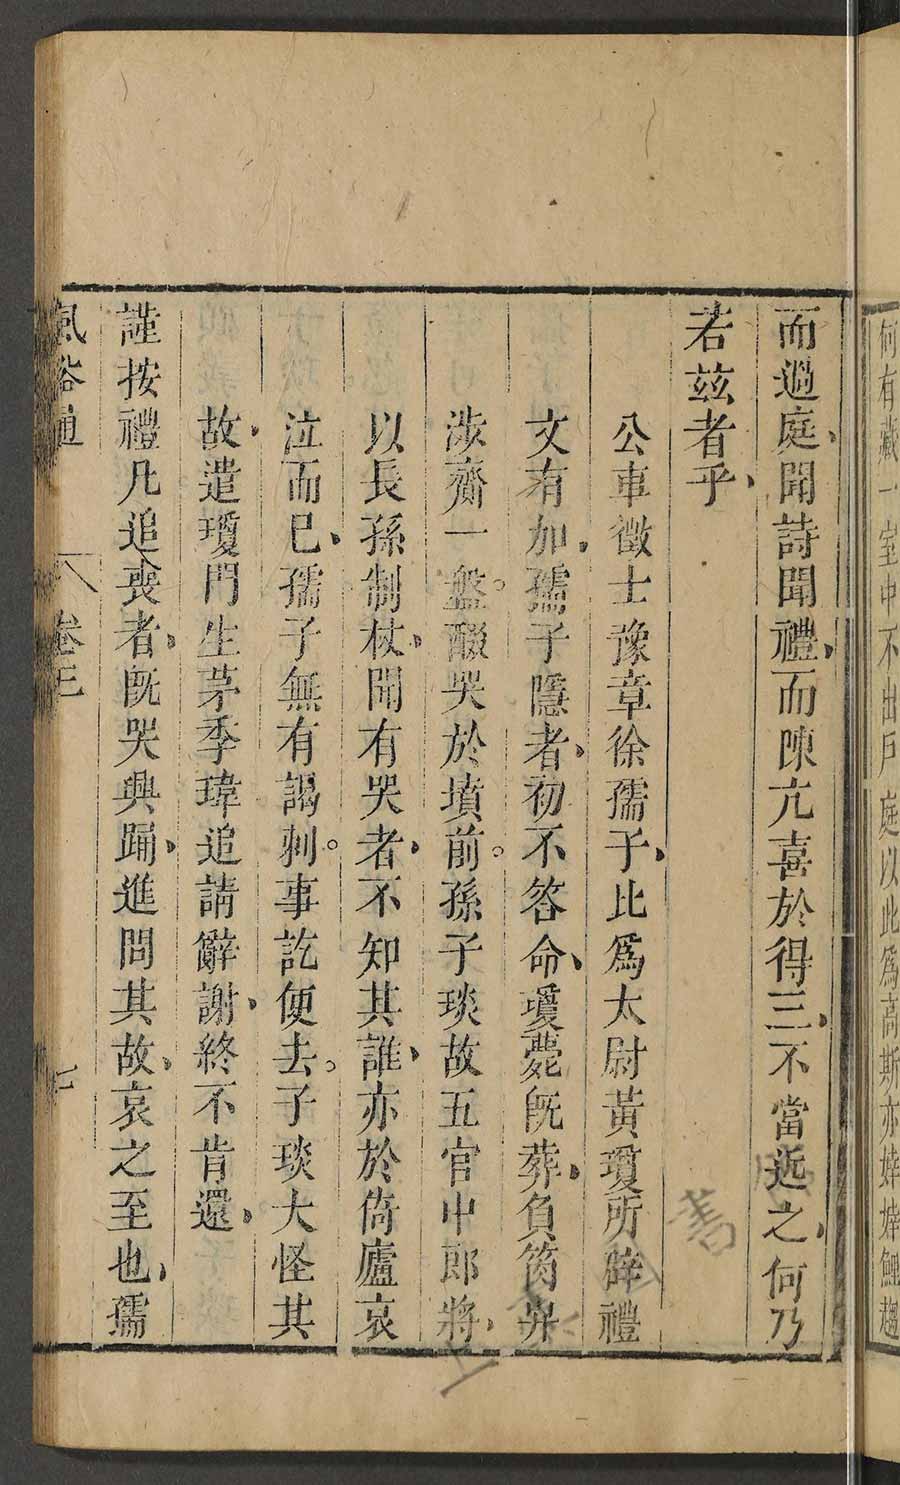 何有藏一室中不出戶庭以此爲高斯亦婞婞鯉趨
而過庭聞詩聞禮而陳亢喜於得三不當近之何乃
若茲者乎
公車徵士豫章徐孺子比爲太尉黃瓊所辟禮
文有加孺子隱者初不答命瓊薨既葬負笈弁
涉齎一盤醊哭於墳前孫子琰故五官中郎將
以長孫制杖聞有哭者不知其誰亦於倚廬哀
泣而已孺子無有謁刺事訖便去子琰大怪其
故遣瓊門生茅季瑋追請辭謝終不肯還
謹按禮凡追喪者既哭興踊進問其故哀之至也孺
風俗通 卷三 七